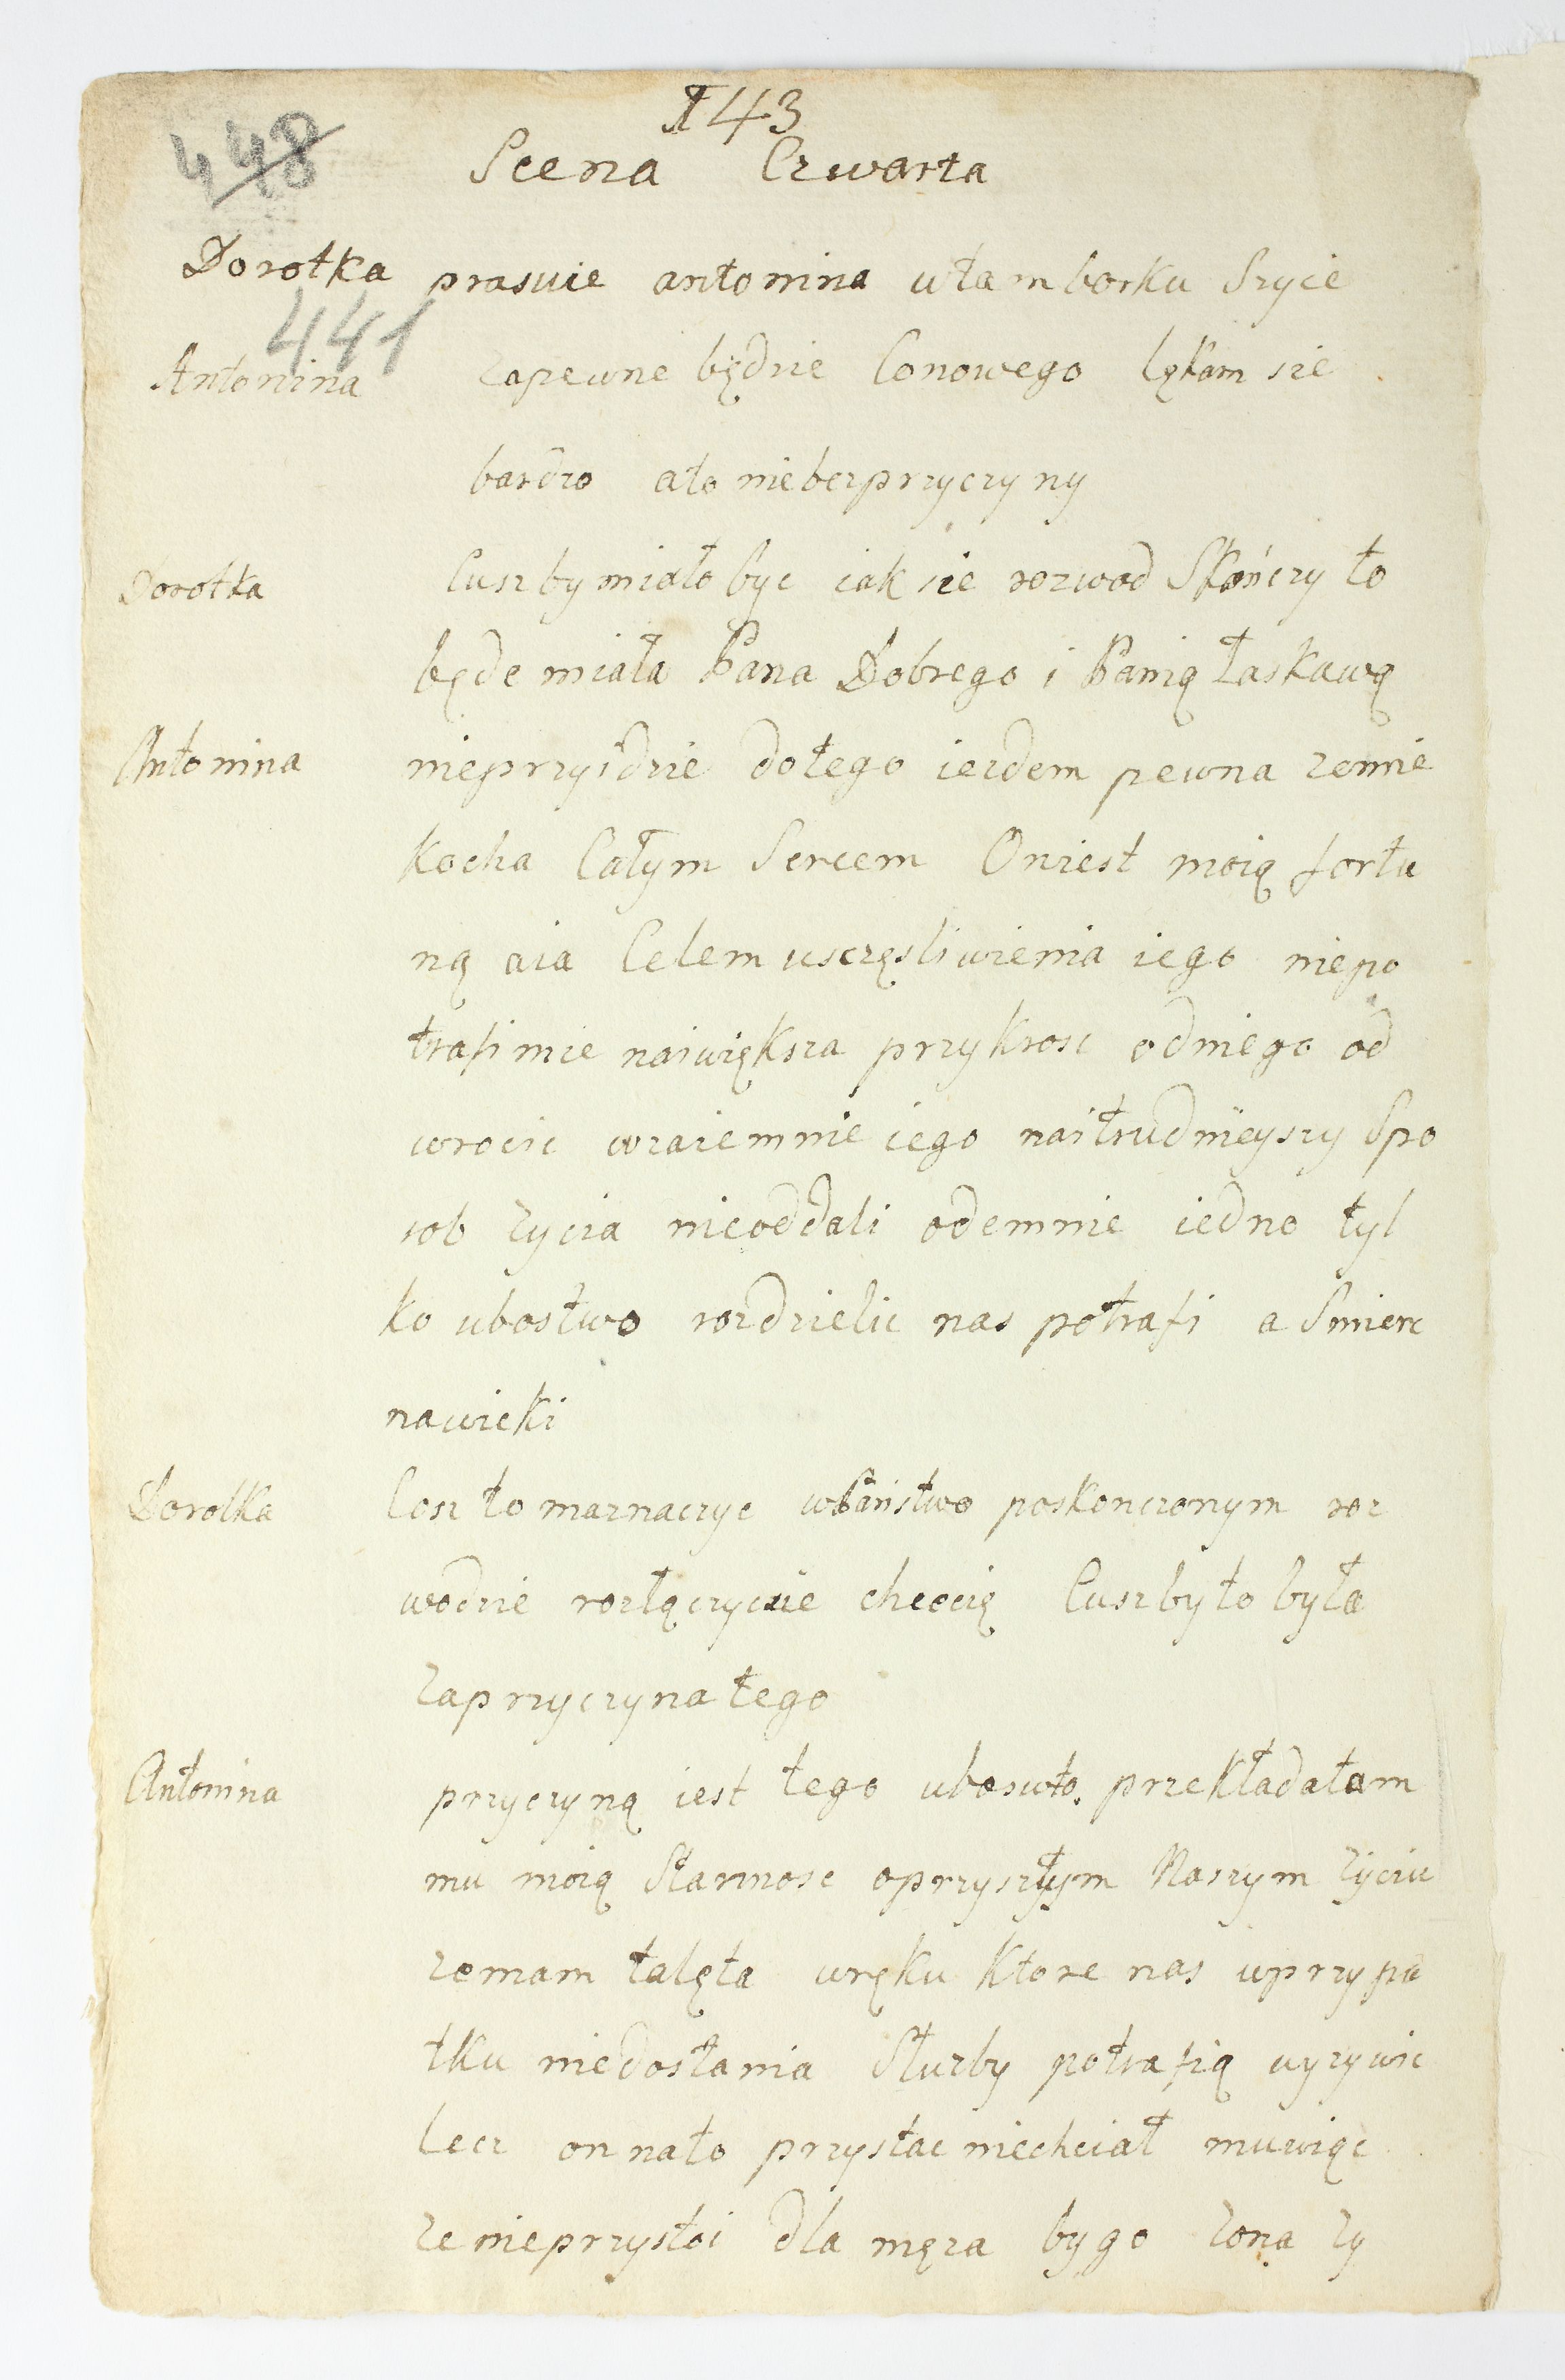 143
448
Scena Czwarta
Dorotka prasuie antonina wtamborku Szyie
441
Antonina zapewne będzie Conowego lękam sie
bardzo ato niebezprzyczyny
Dorotka Cuszby miało byc iak sie rozwod Skończy to
będe miała Pana Dobrego i Panią Łaskawą
Antonina nieprzyidzie dotego iezdem pewna zemie
kocha Całym Sercem Oniest moią fortu
ną aia Celem usczęsliwienia iego niepo
trafi mie naiwiększa przykrosc odniego od
wrocic wzaiemnie iego naitrudnieyszy Spo
sob zycia nieoddali odemnie iedno tyl
ko ubostwo rozdzielic nas potrafi a Smierc
nawieki
Dorotka Cosz to maznaczyc wPaństwo poskonczonym roz
wodzie rozłączycsie chcecię Cuszby to była
zaprzyczyna tego
Antonina przyczyną iest tego uboswto. przekładałam
mu moią Starnosc oprzyszłym Naszym zyciu
zemam talęta wręku ktore nas wprzypa
tku niedostania Słuzby potrafią wyzywic
lecz onnato przystac niechciał muwiąc
ze nieprzystoi dla męza bygo zona zy